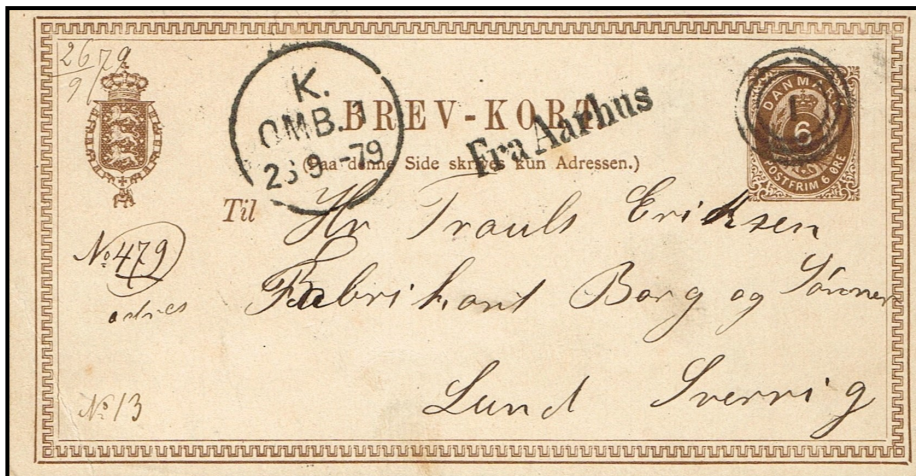 2679
9
K.
OMB. 1
26 9 -79
BREV-KORT
Fra Aarhus
(Paa denne Side skrives kun Adressen.)
DANMARK
1
6
POSTFRIM 6 ØRE
Til
Hr Trauls Eriksen
No 479
Fabrikant Borg og Sönner
adres
Lund Sverrig
No 13